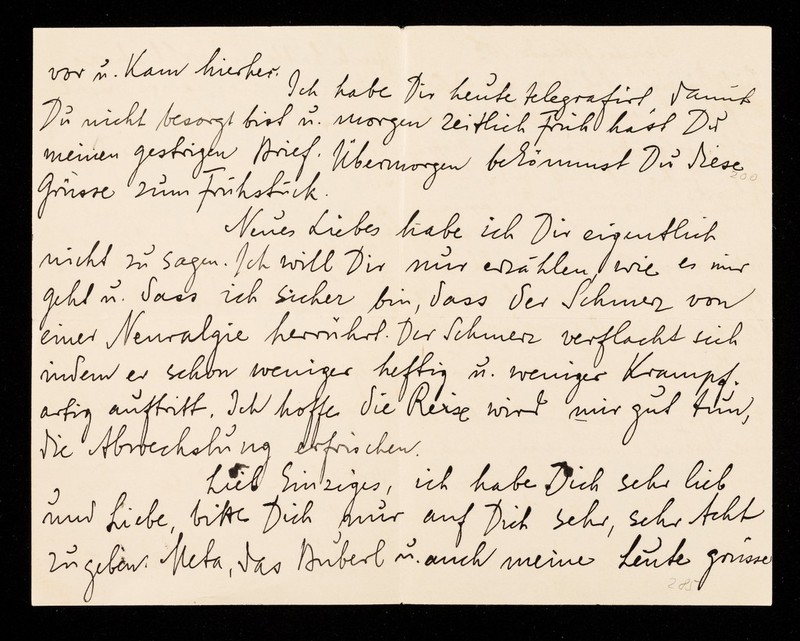 vor u. kam hierher.
Ich habe Dir heute telegrafirt, damit
Du nicht besorgt bist u. morgen zeitlich Früh hast Du
meinen gestrigen Brief. Übermorgen bekömmst Du diese
200
Grüsse zum Frühstück.
Neues Liebes habe ich Dir eigentlich
nicht zu sagen. Ich will Dir nur erzählen, wie es mir
geht u. dass ich sicher bin, dass der Schmerz von
einer Neuralgie herrührt. Der Schmerz verflacht sich
indem er schon weniger heftig u. weniger Krampf-
artig auftritt. Ich hoffe die Reise wird mir gut tun,
die Abwechslung erfrischen.
Lieb Einziges, ich habe Dich sehr lieb
und Liebe, bitte Dich nur auf Dich sehr, sehr Acht
zu geben. Meta, das Buberl u. auch meine Leute grüsse
285